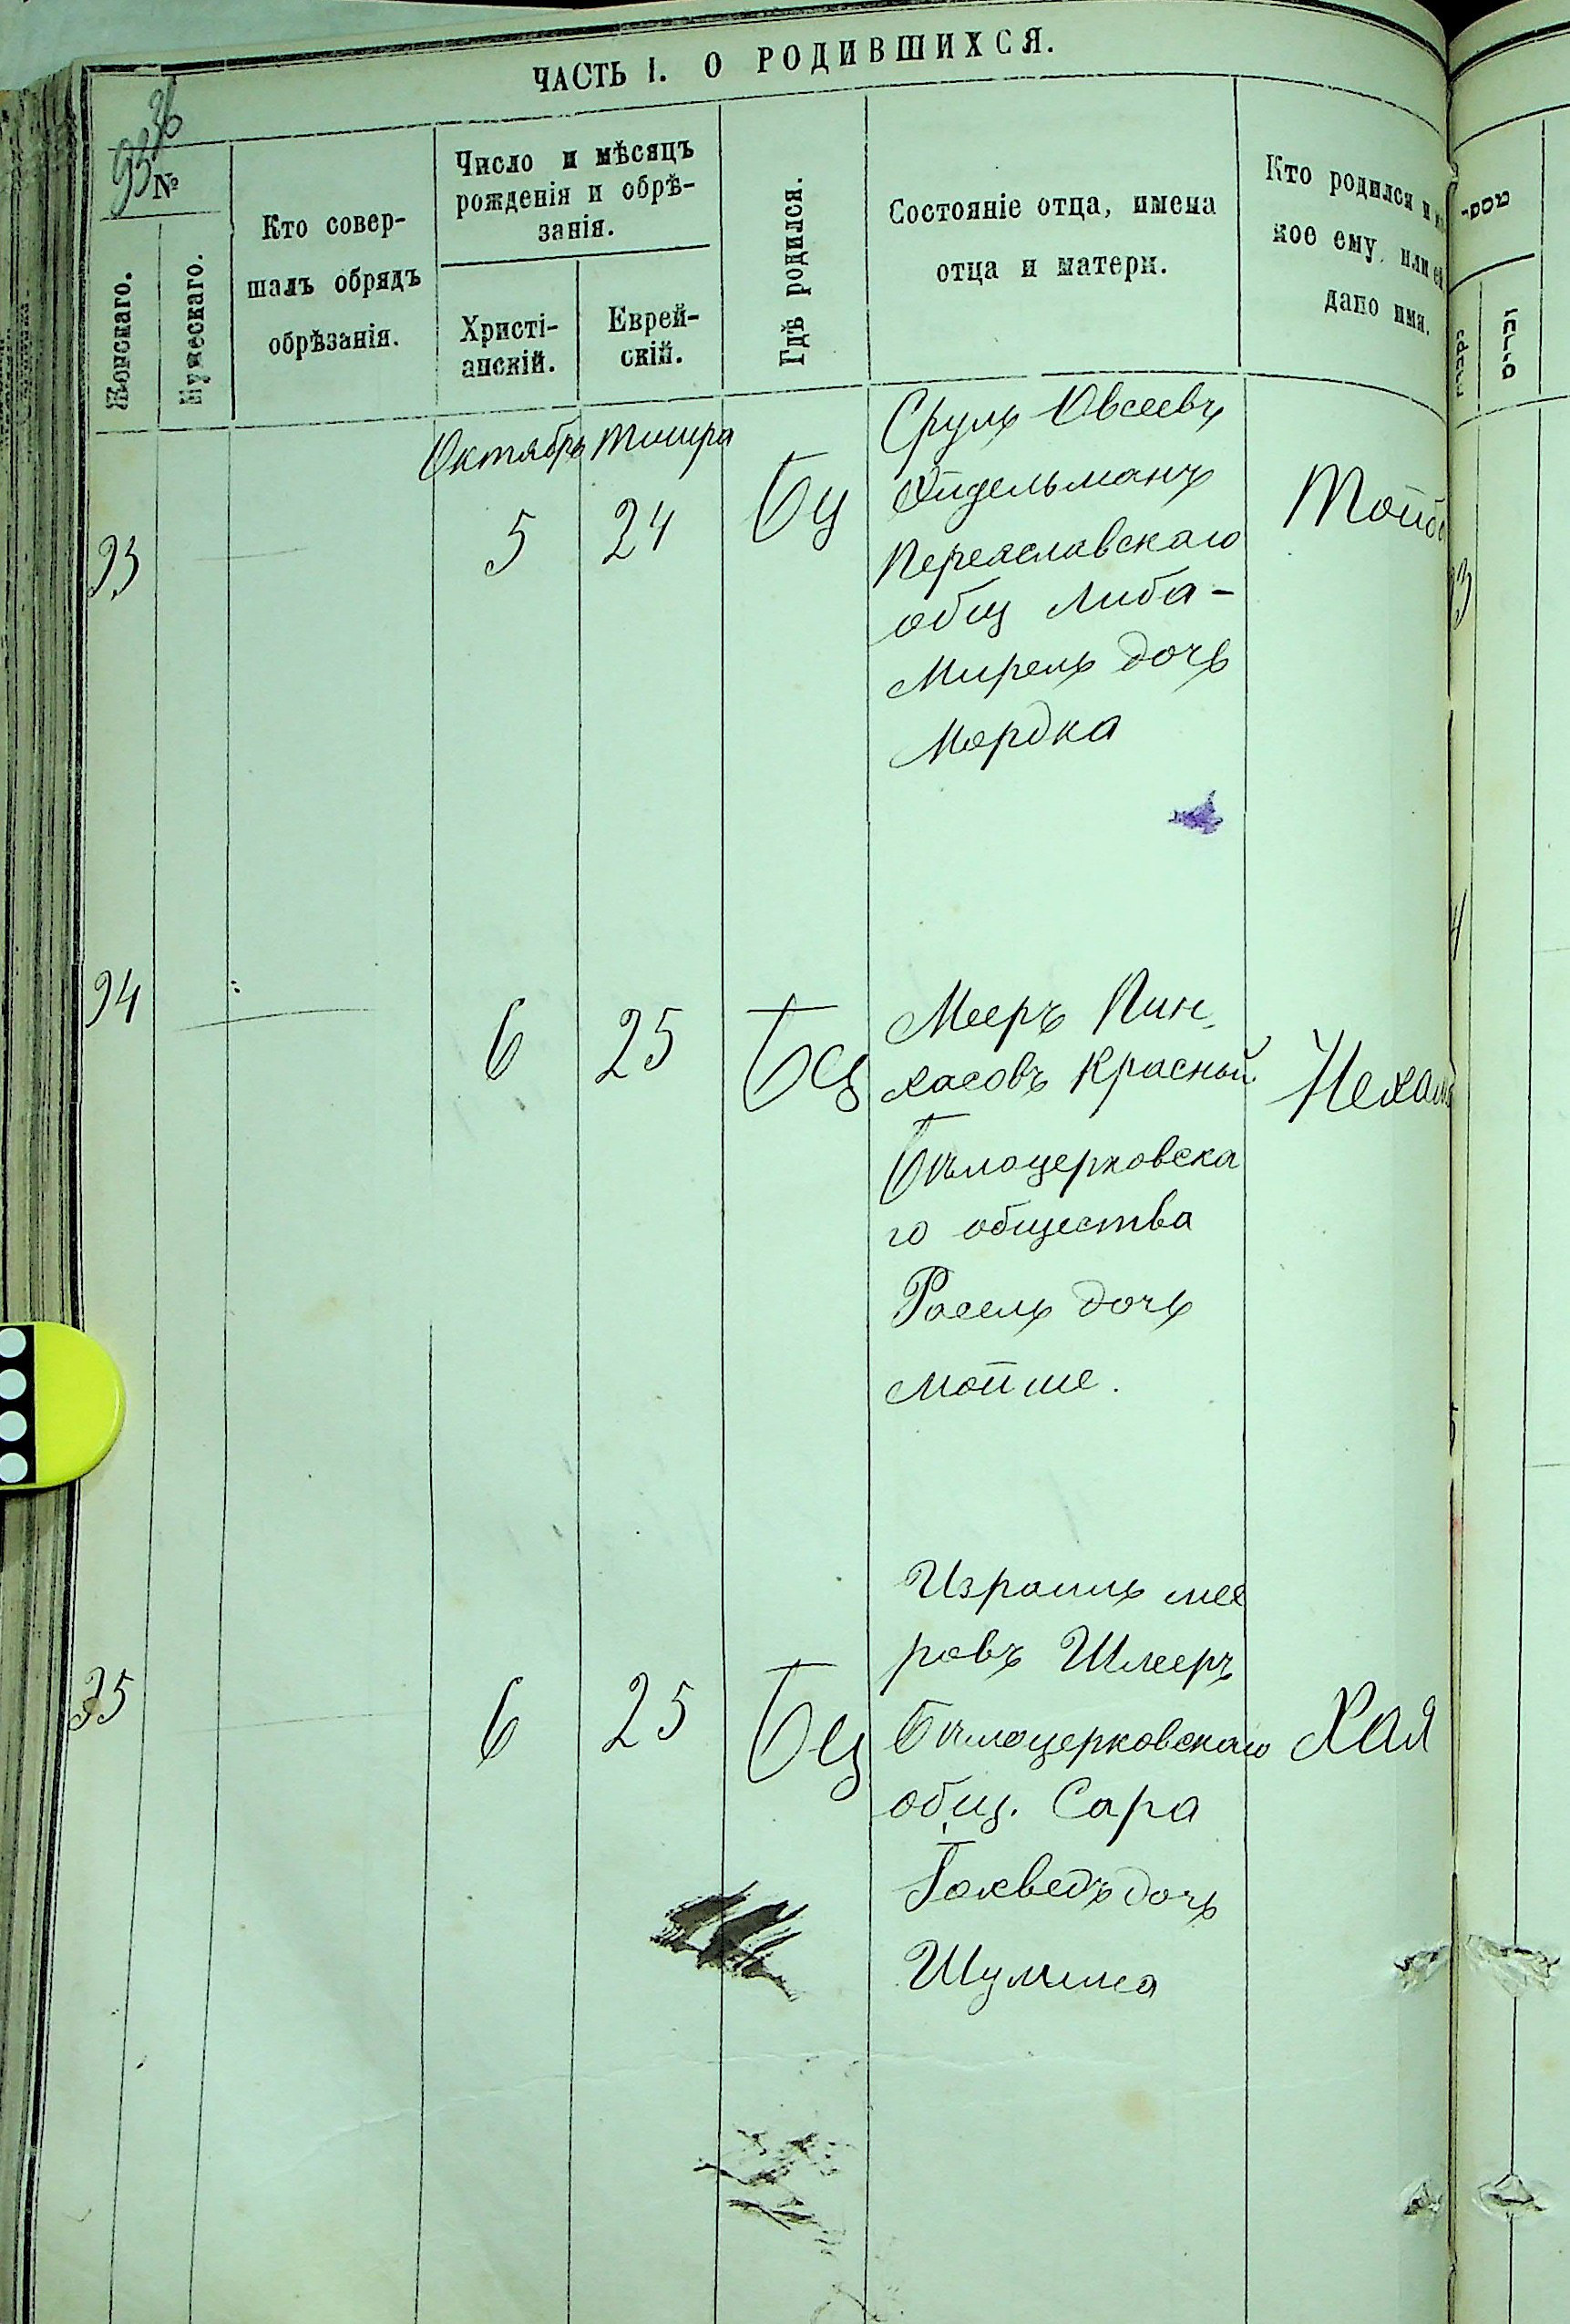 ЧАСТЬ I. О РОДИВШИХСЯ.
№
Женскаго.
Мужескаго.
Кто совер-
шалъ обрядъ
обрѣзанія.
Число и мѣсяцъ
рожденія и обрѣ-
занія.
Христі-
анскій.
Еврей-
скій.
Гдѣ родился.
Состояніе отца, имена
отца и матери.
Кто родился и
кое ему, или
дано имя.
Октябрь Тишра
93
5
24
Бц
Сруль Овсеевъ
Эйдельманъ
Переяславскаго
общ Либа-
Мирель дочь
Мордка
94
6
25
Бц
Мееръ Пин-
хасовъ Красный
Бѣлоцерковска
го общества
Расель дочь
Мойше.
Нехам
95
6
25
Бц
Израиль Мее
ровъ Шмееръ
Бѣлоцерковскаго
общ. Сара
Іохведъ дочь
Шулима
Хая